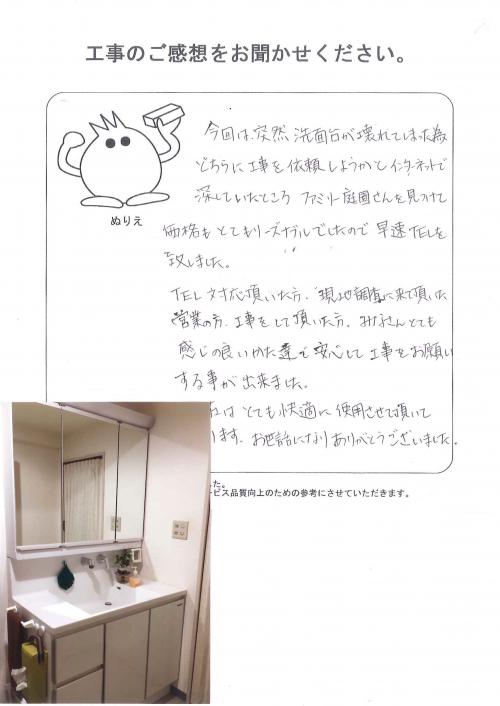 工事のご感想をお聞かせください。
ぬりえ
今回は、突然 洗面台が壊れてしまった為
どちらに工事を依頼しようかとインターネットで
探していたところ ファミリー庭園さんを見つけて
価格もとてもリーズナブルでしたので 早速TELを
致しました。
TEL対応頂いた方、現地調査に来て頂いた
営業の方、工事をして頂いた方、みなさんとても
感じの良いかた達で安心して工事をお願い
する事が出来ました。
はとても快適に使用させて頂いて
ります。お世話になりありがとうございました。
た。
ービス品質向上のための参考にさせていただきます。